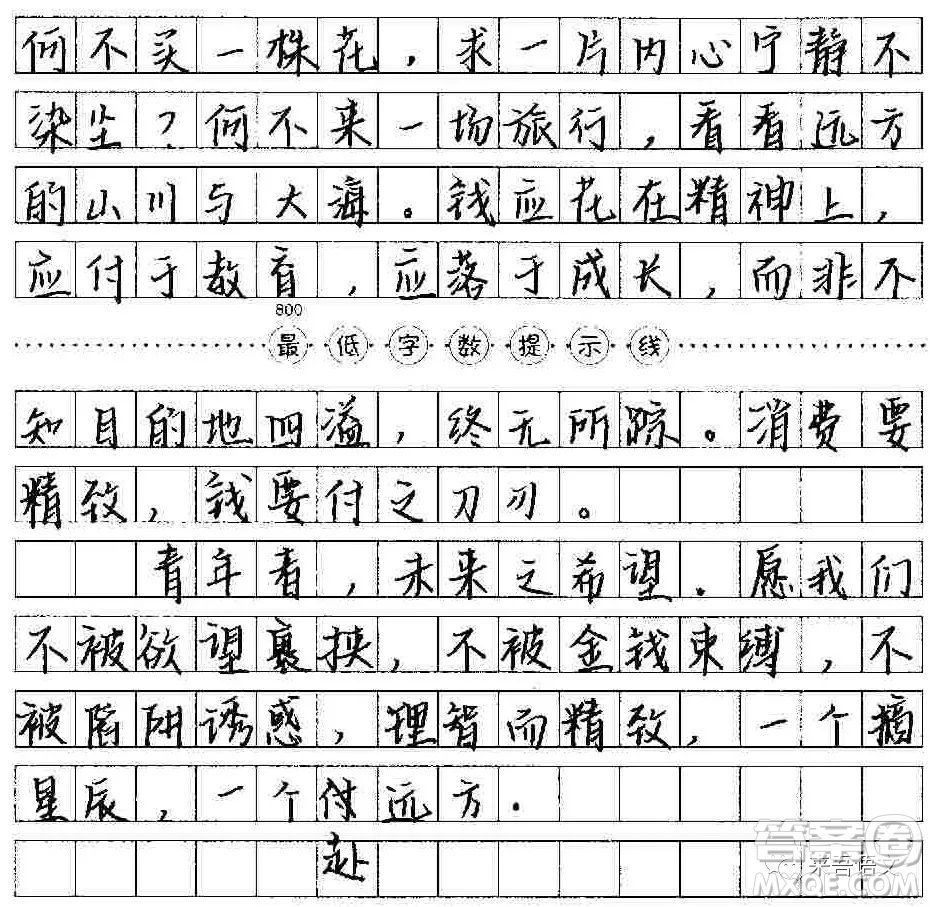 何不买一株花，求一片内心宁静不
染尘？何不来一场旅行，看看远方
的山川与大海。钱应花在精神上，
应付于教育，应落于成长，而非不
800
最低字数提示线
知目的地四溢，终无所踪。消费要
精致，钱要付之刀刃。
青年者，未来之希望．愿我们
不被欲望裹挟，不被金钱束缚，不
被陷阱诱惑，理智而精致，一个摘
星辰，一个付远方．
赴
答案圈
MXQE.COM